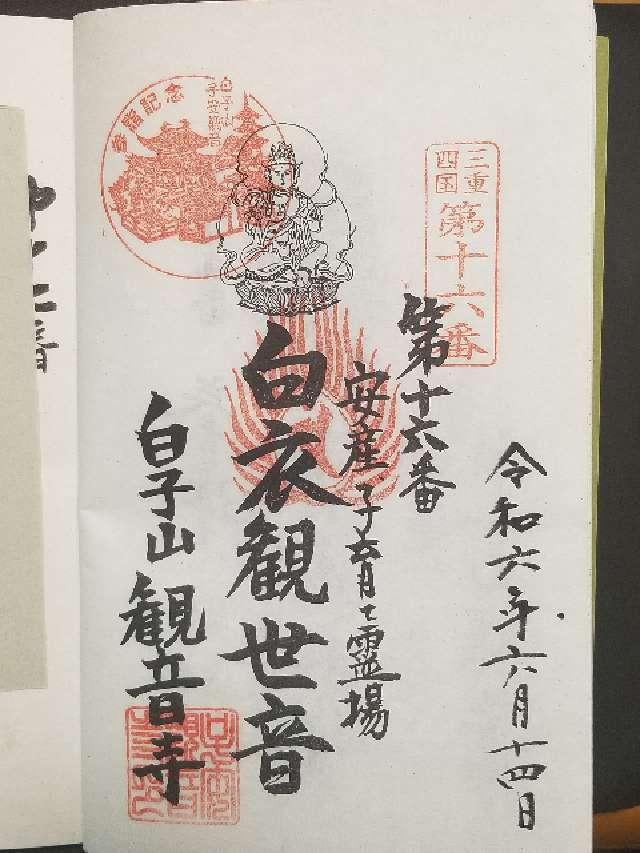 三重
四国
第十六番
令和六年六月十四日
第十六番
安産子育て霊場
白衣観世音
白子山観音寺
参詣記念
白子山
子安観音